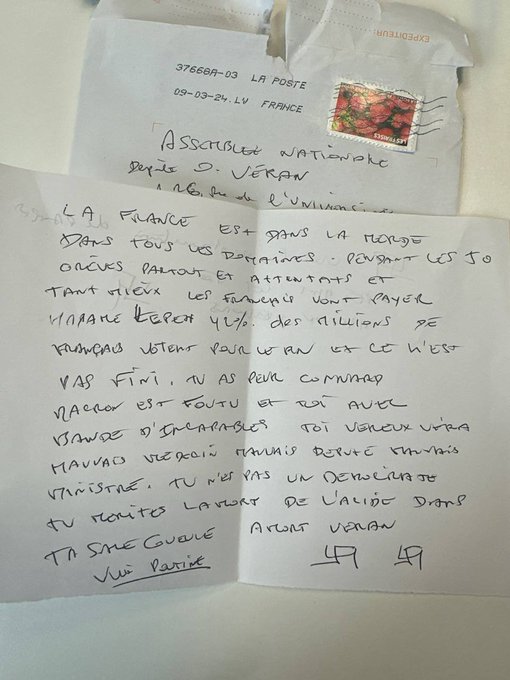 EXPEDITEUR:
37668A-03 LA POSTE
09-03-24.LV FRANCE
LES FRAISES
ASSEMBLEE NATIONALE
Député O. VÉRAN
126, rue de l'université
LA FRANCE EST DANS LA MERDE
DANS TOUS LES DOMAINES. PENDANT LES JO
GRÈVES PARTOUT ET ATTENTATS ET
TANT MIEUX LES FRANÇAIS VONT PAYER
MADAME LEPEN 42%. des MILLIONS DE
FRANÇAIS VOTENT POUR LE RN ET CE N'EST
PAS FINI. TU AS PEUR CONNARD
MACRON EST FOUTU ET TOI AVEC
BANDE D'INCAPABLES TOI VEREUX VÉRAN
MAUVAIS MEDECIN MAUVAIS DEPUTÉ MAUVAIS
MINISTRE. TU N'ES PAS UN DEMOCRATE
TU MERITES LA MORT DE L'ACIDE DANS
TA SALE GUEULE A MORT VERAN
Vive Poutine